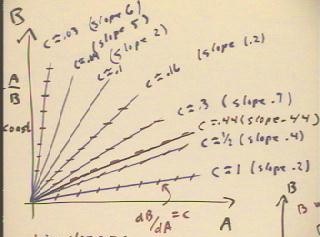 B
c=.03 (slope 6)
(slope 5)
c=.1 (slope 2)
c=.16 (slope 1.2)
A
B
const
c=.3 (slope .7)
c=.44 (slope .44)
c=1/2 (slope .4)
c=1 (slope .2)
dB/dA = c
A
B
B